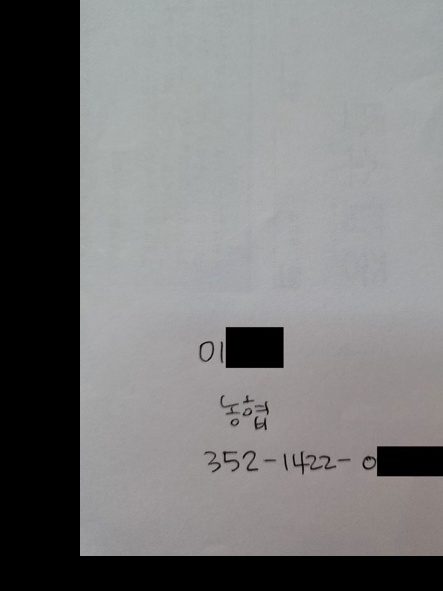 01
농협
352-1422-0